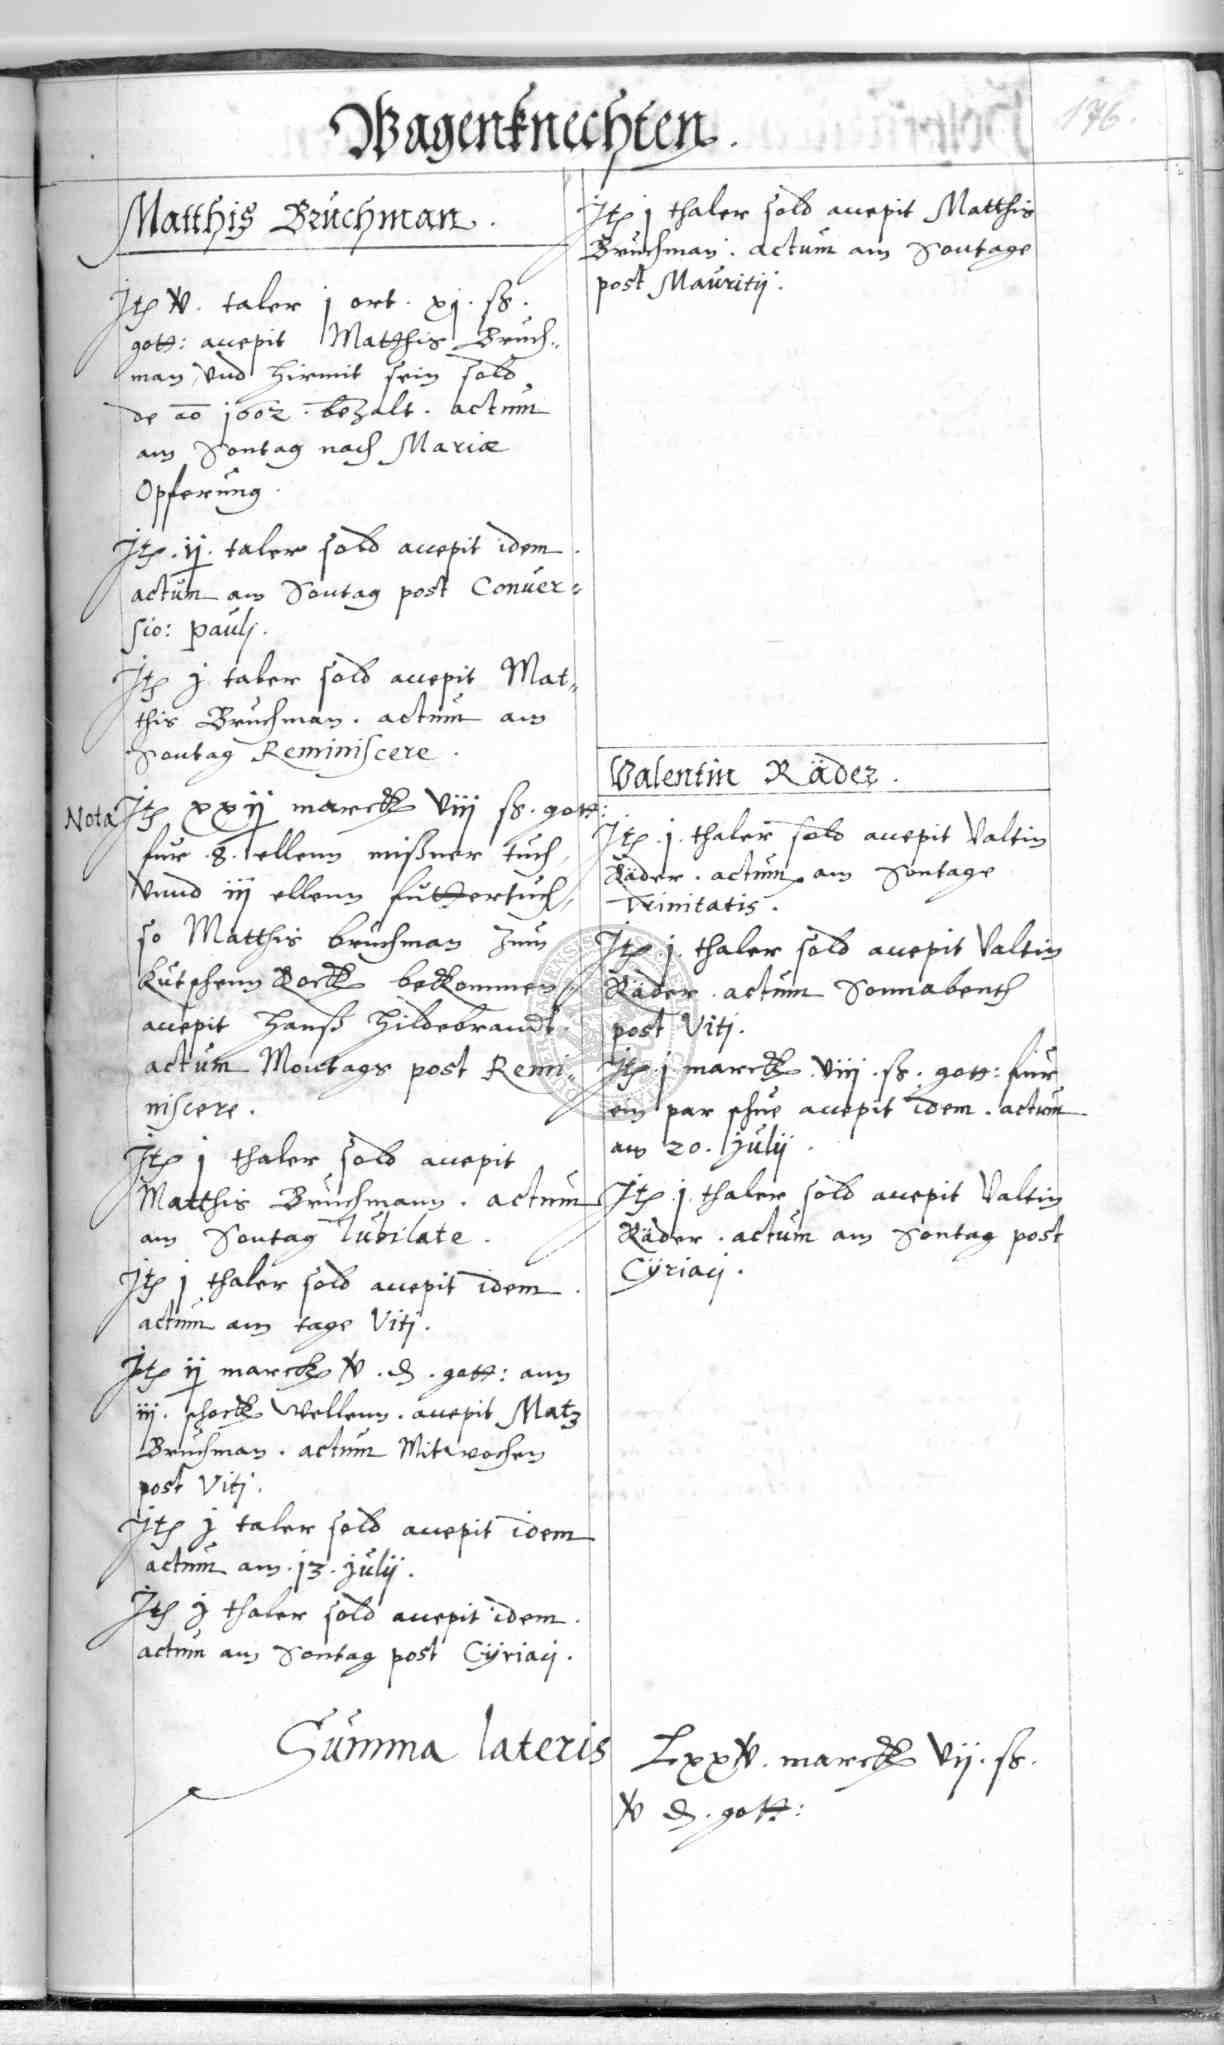 176.
Wagenknechten.
Matthis Bruchman.
Itẽ v. taler j ort. xj. ß.
gott: accepit Matthis Bruch-
man, vnd hiermit sein sold
de ao 1602. bezalt. actum
am Sontag nach Mariæ
Opferung.
Itẽ. ij. taler sold accepit idem.
actum am Sontag post Conuer-
sio: Paulj.
Itẽ j taler sold accepit Mat-
this Bruchman. actum am
Sontag Reminiscere.
Nota Itẽ xxij marck viij ß. gott:
fur .8. ellenn mißner tuch,
vnnd iij ellenn futtertuch,
so Matthis bruchman zum
kutschenn Rock bekommen,
accepit Hanß Hildebrandt.
actum Montags post Remi-
niscere.
Itẽ j thaler sold accepit
Matthis Bruchmann. actum
am Sontag Iubilate.
Itẽ j thaler sold accepit idem.
actum am tage Vitj.
Itẽ ij marck v. ₰. gott: ann
iij. schock wellenn. accepit Matz
Bruchman. actum Mitwochen
post Vitj.
Itẽ j taler sold accepit idem
actum am. 13. Julij.
Itẽ j thaler sold accepit idem.
actum am Sontag post Cÿriacj.
Itẽ j thaler sold accepit Matthis
Bruchman. actum am Sontage
post Mauritij.
Valentin Räder.
Itẽ. j. thaler sold accepit Valtin
Räder. actum am Sontage
Trinitatis.
Itẽ j. thaler sold accepit Valtin
Räder. actum Sonnabents
post Vitj.
Itẽ. j marck. viij. ß. gott: fur
ein par schue accepit idem. actum
am 20. Julij.
Itẽ. j. thaler sold accepit Valtin
Räder. actum am Sontag post
Cÿriacj.
Summa lateris Lxxv. marck vij. ß.
v ₰. gott: